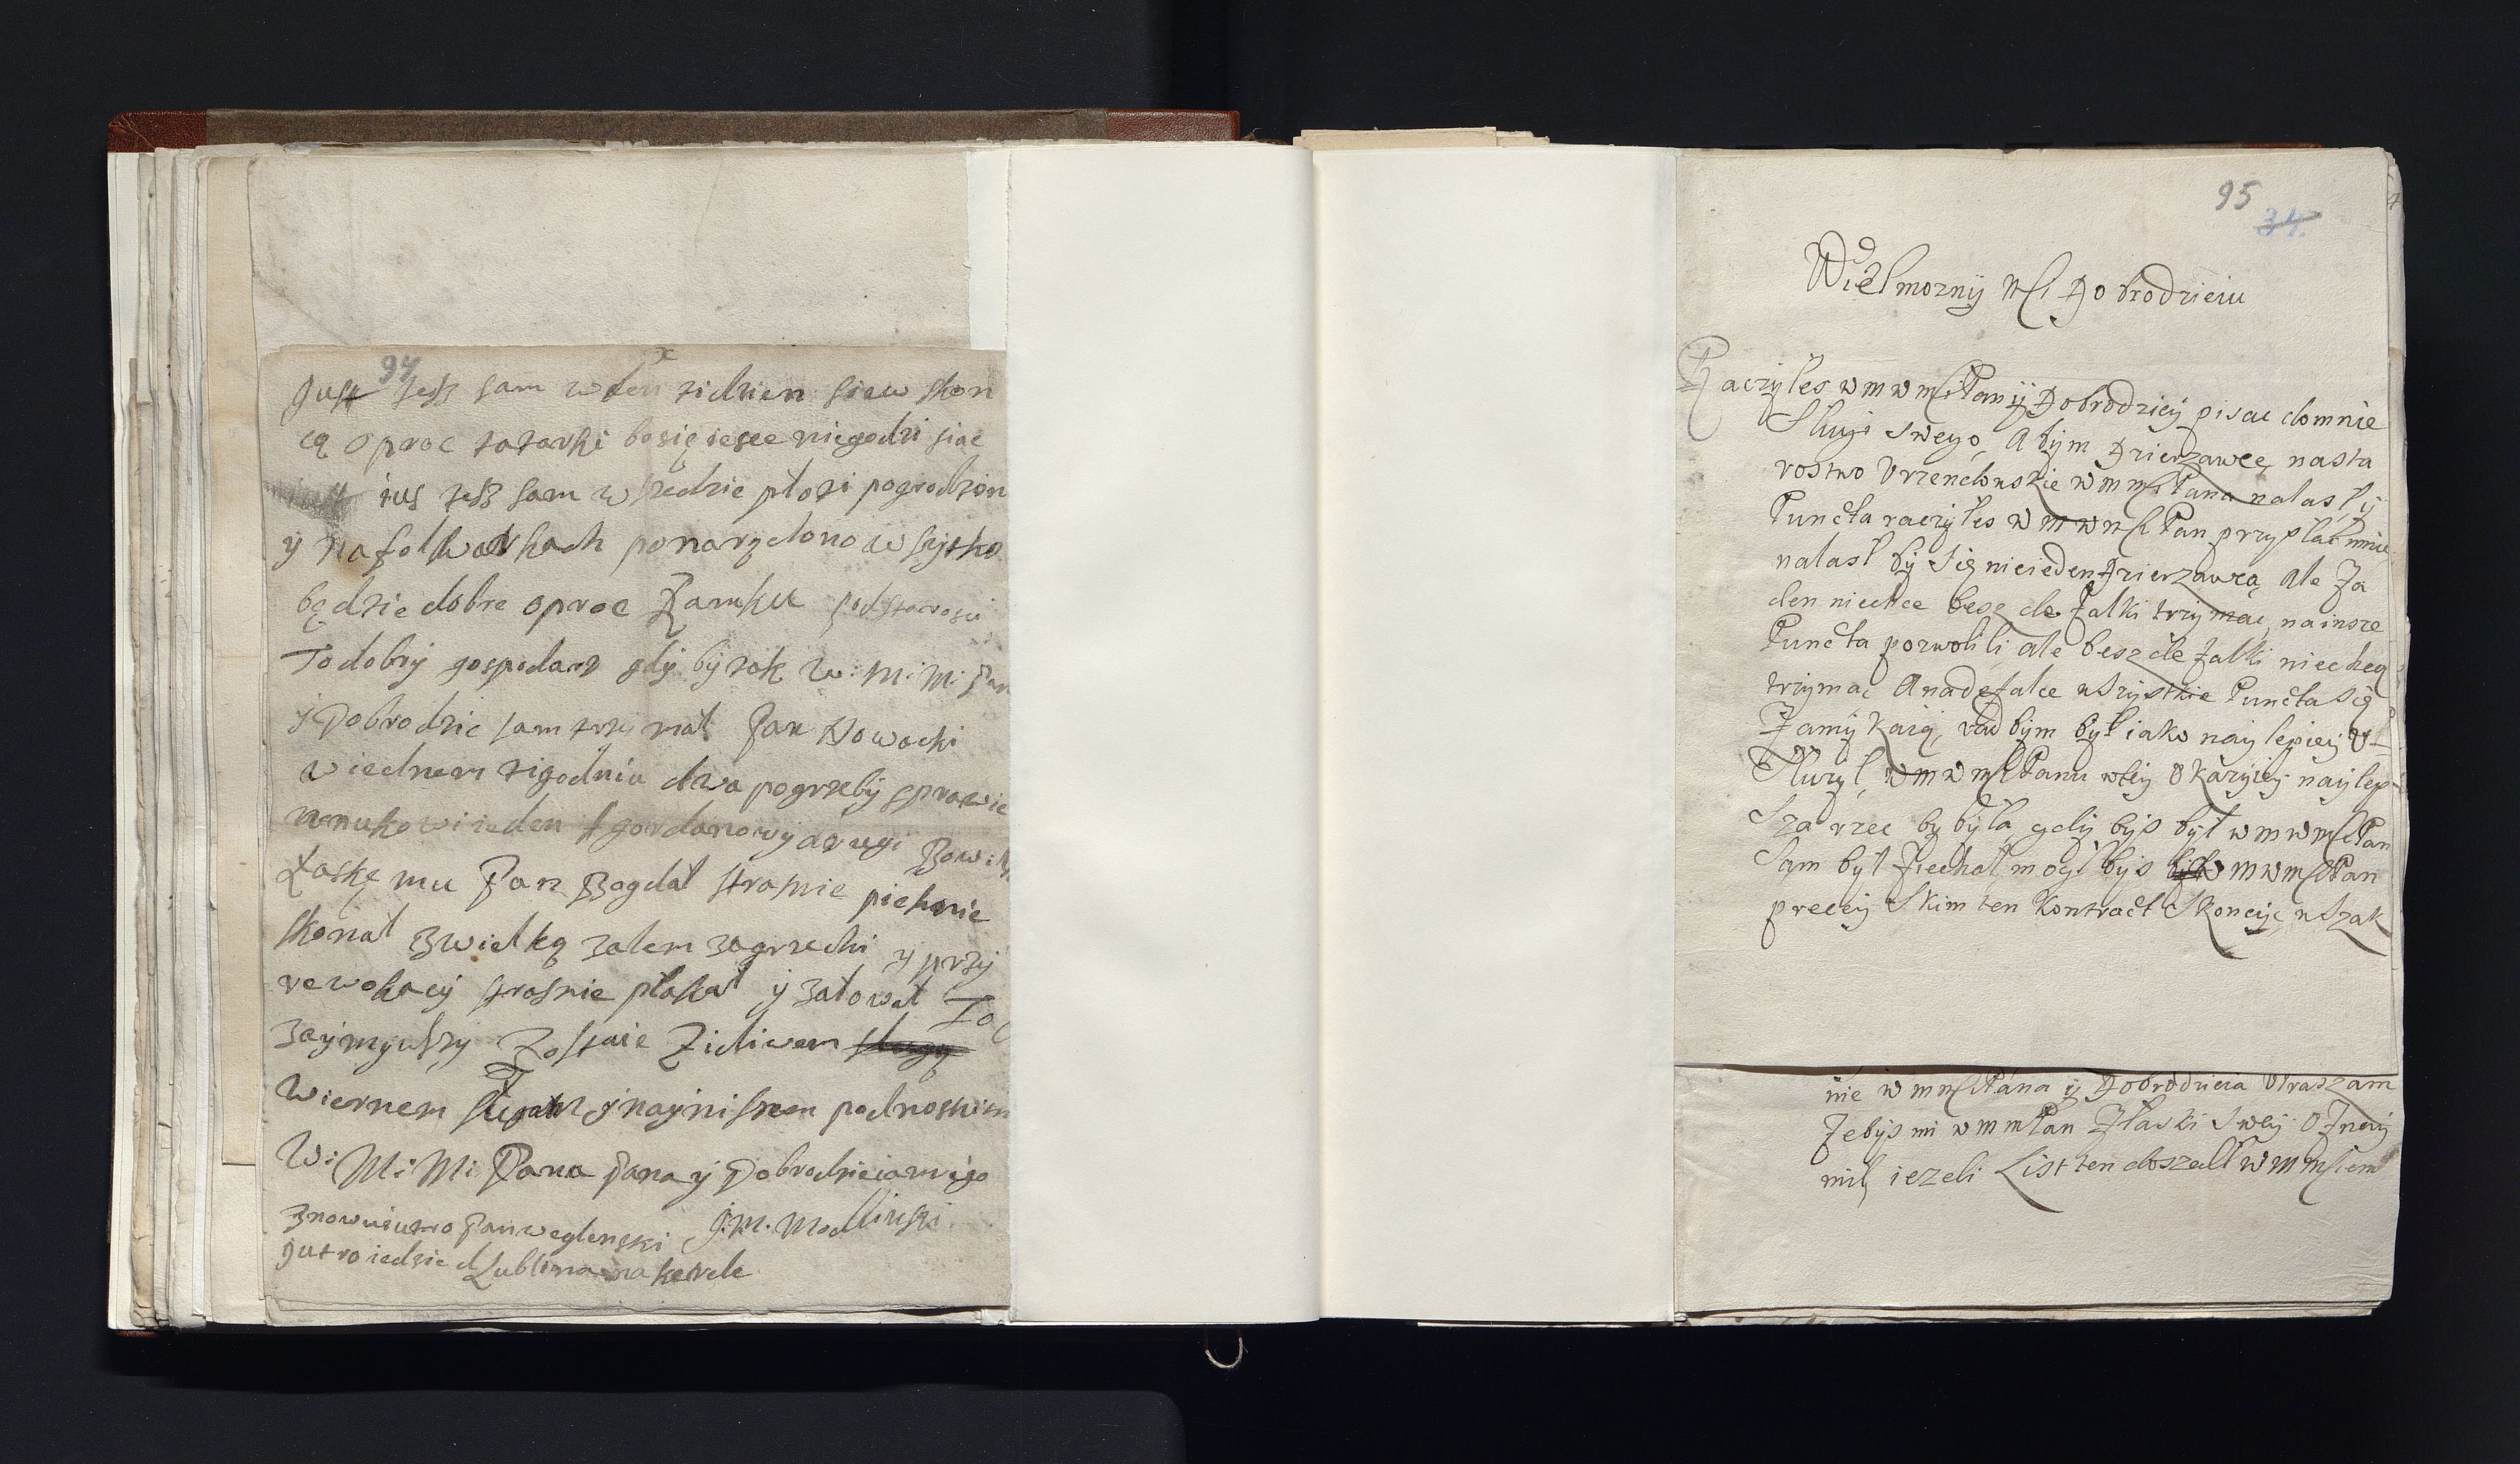 94
Just tesz sam w ten tidzien siew skon
cą oproc tatarki bo się iesce niegodzi siac
ius tesz sam wszedzie płozi pogrodzon
ÿ na folwarkach ponarządono wszytko
będzie dobre oproc Zamku podstarosci
To dobrÿ gospodarz gdÿ bÿ tak W: M: M: Pan
ÿ Dobrodzic sam trzimał Pan Nowacki
w iednem tigodniu dwa pogrzebÿ sprawie
wnukowi ieden Jgordanowÿ drugi
Łaskę mu Pan Bog dał strasnie piekrnie
skonał z wielką zalem za grzechi ÿ przÿ
rewokacÿ strasnie płakał ÿ załował
zaÿmÿwszÿ Zostaie Zicliwem
Wiernem ÿ naÿnisrem podnoskiem
W: M: M: Pana Pana ÿ Dobrodzieia mego
J: M. Modlinski
Pan weglenski
Jutro iedzie d Lublina na
95
34.
Wielmoznÿ Mśi Dobrodzieiu
Raczÿłes w m w mśi Panÿ Dobrodzieÿ pisac do mnie
Sługi swego, Abÿm Dzierzawcę na sta
rostwo Vrzendowskie w m mśi Pana nalasł, ÿ
Puncta raczÿłes w m w mśi Pan przysłac mnie
nalasł bÿ się nieieden Dzierzawcą, ale Za
den niechce besz defalki trzÿmac, na insze
Puncta pozwolili ale besz defalki niechcą
trzÿmac Anadefalce wszÿstkie Puncta się
Zamÿkaią, rad bÿm bÿł iako naÿlepieÿ V-
Słuzÿł, w m w mśi Panu wteÿ Okazÿieÿ naÿlep-
Sza rzec bÿ bÿła, gdÿ bÿs bÿł w m w mśi Pan
Sam bÿł Ziechał, mogł bÿs w m w mśi Pan
preceÿ Skim ten Kontract Skonczÿc, wSzak
nie w m mśi Pana ÿ Dobrodzieia Vpraszam
Zebÿs mi w m m Pan Złaski Sweÿ Oznaÿ
mił, iezeli List ten doszedł w m mśiem